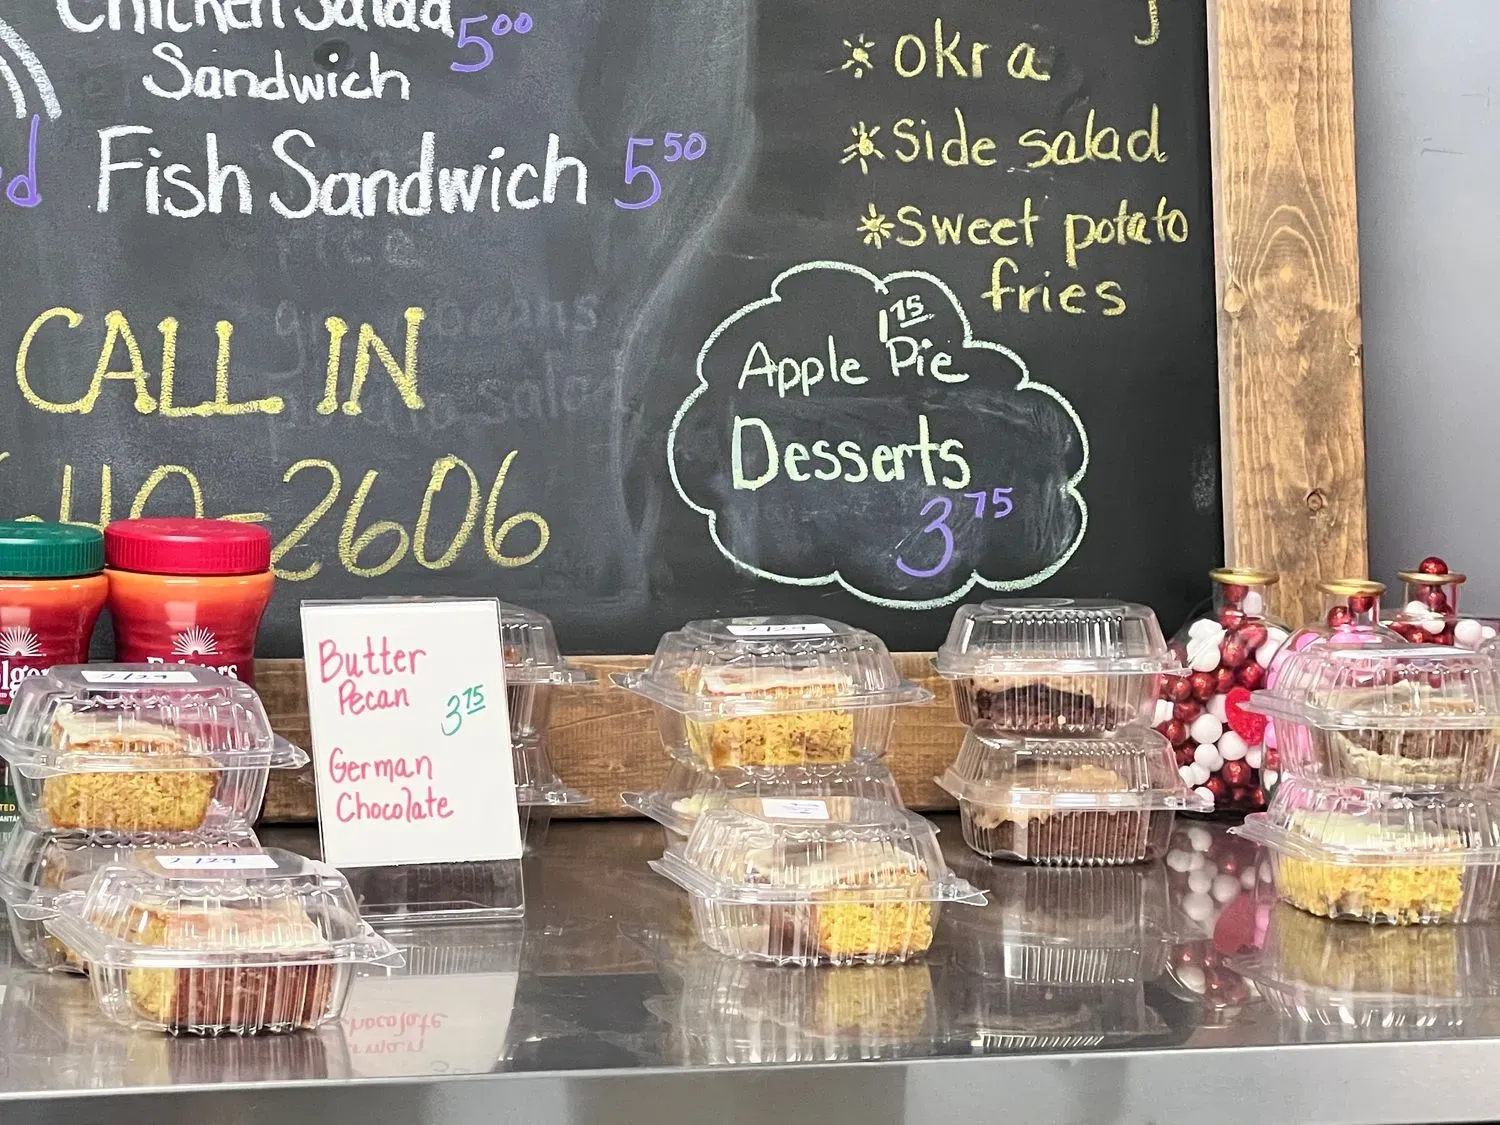 Chicken Salad 5.00
Sandwich
Fish Sandwich 5.50
CALL IN
40-2606
* okra
* side salad
* sweet potato
fries
1.75
Apple Pie
Desserts
3.75
Butter
Pecan
3.75
German
Chocolate
Folgers
2/29
2/29
2/29